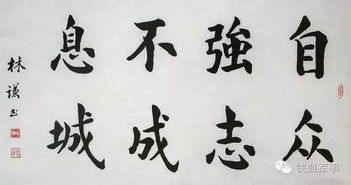 自強不息
众志成城
林谦书
铁血军事